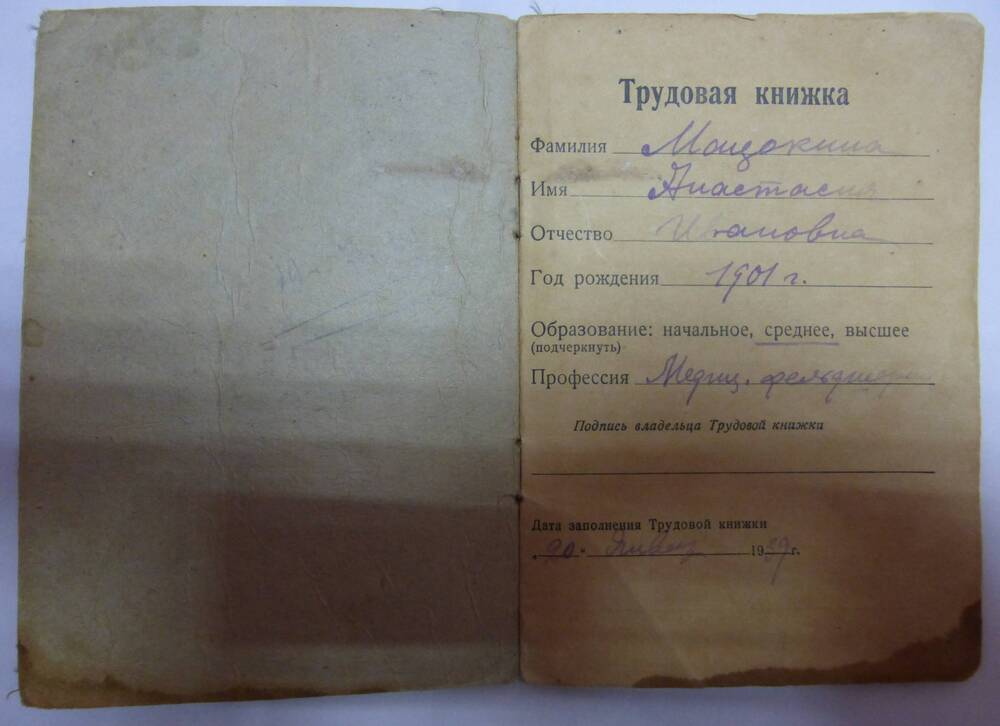 Трудовая книжка
Фамилия Мацокина
Имя Анастасия
Отчество Ивановна
Год рождения 1901 г.
Образование: начальное, среднее, высшее
(подчеркнуть)
Профессия Медиц. фельдшер
Подпись владельца Трудовой книжки
Дата заполнения Трудовой книжки
„20" Январ 1939 г.